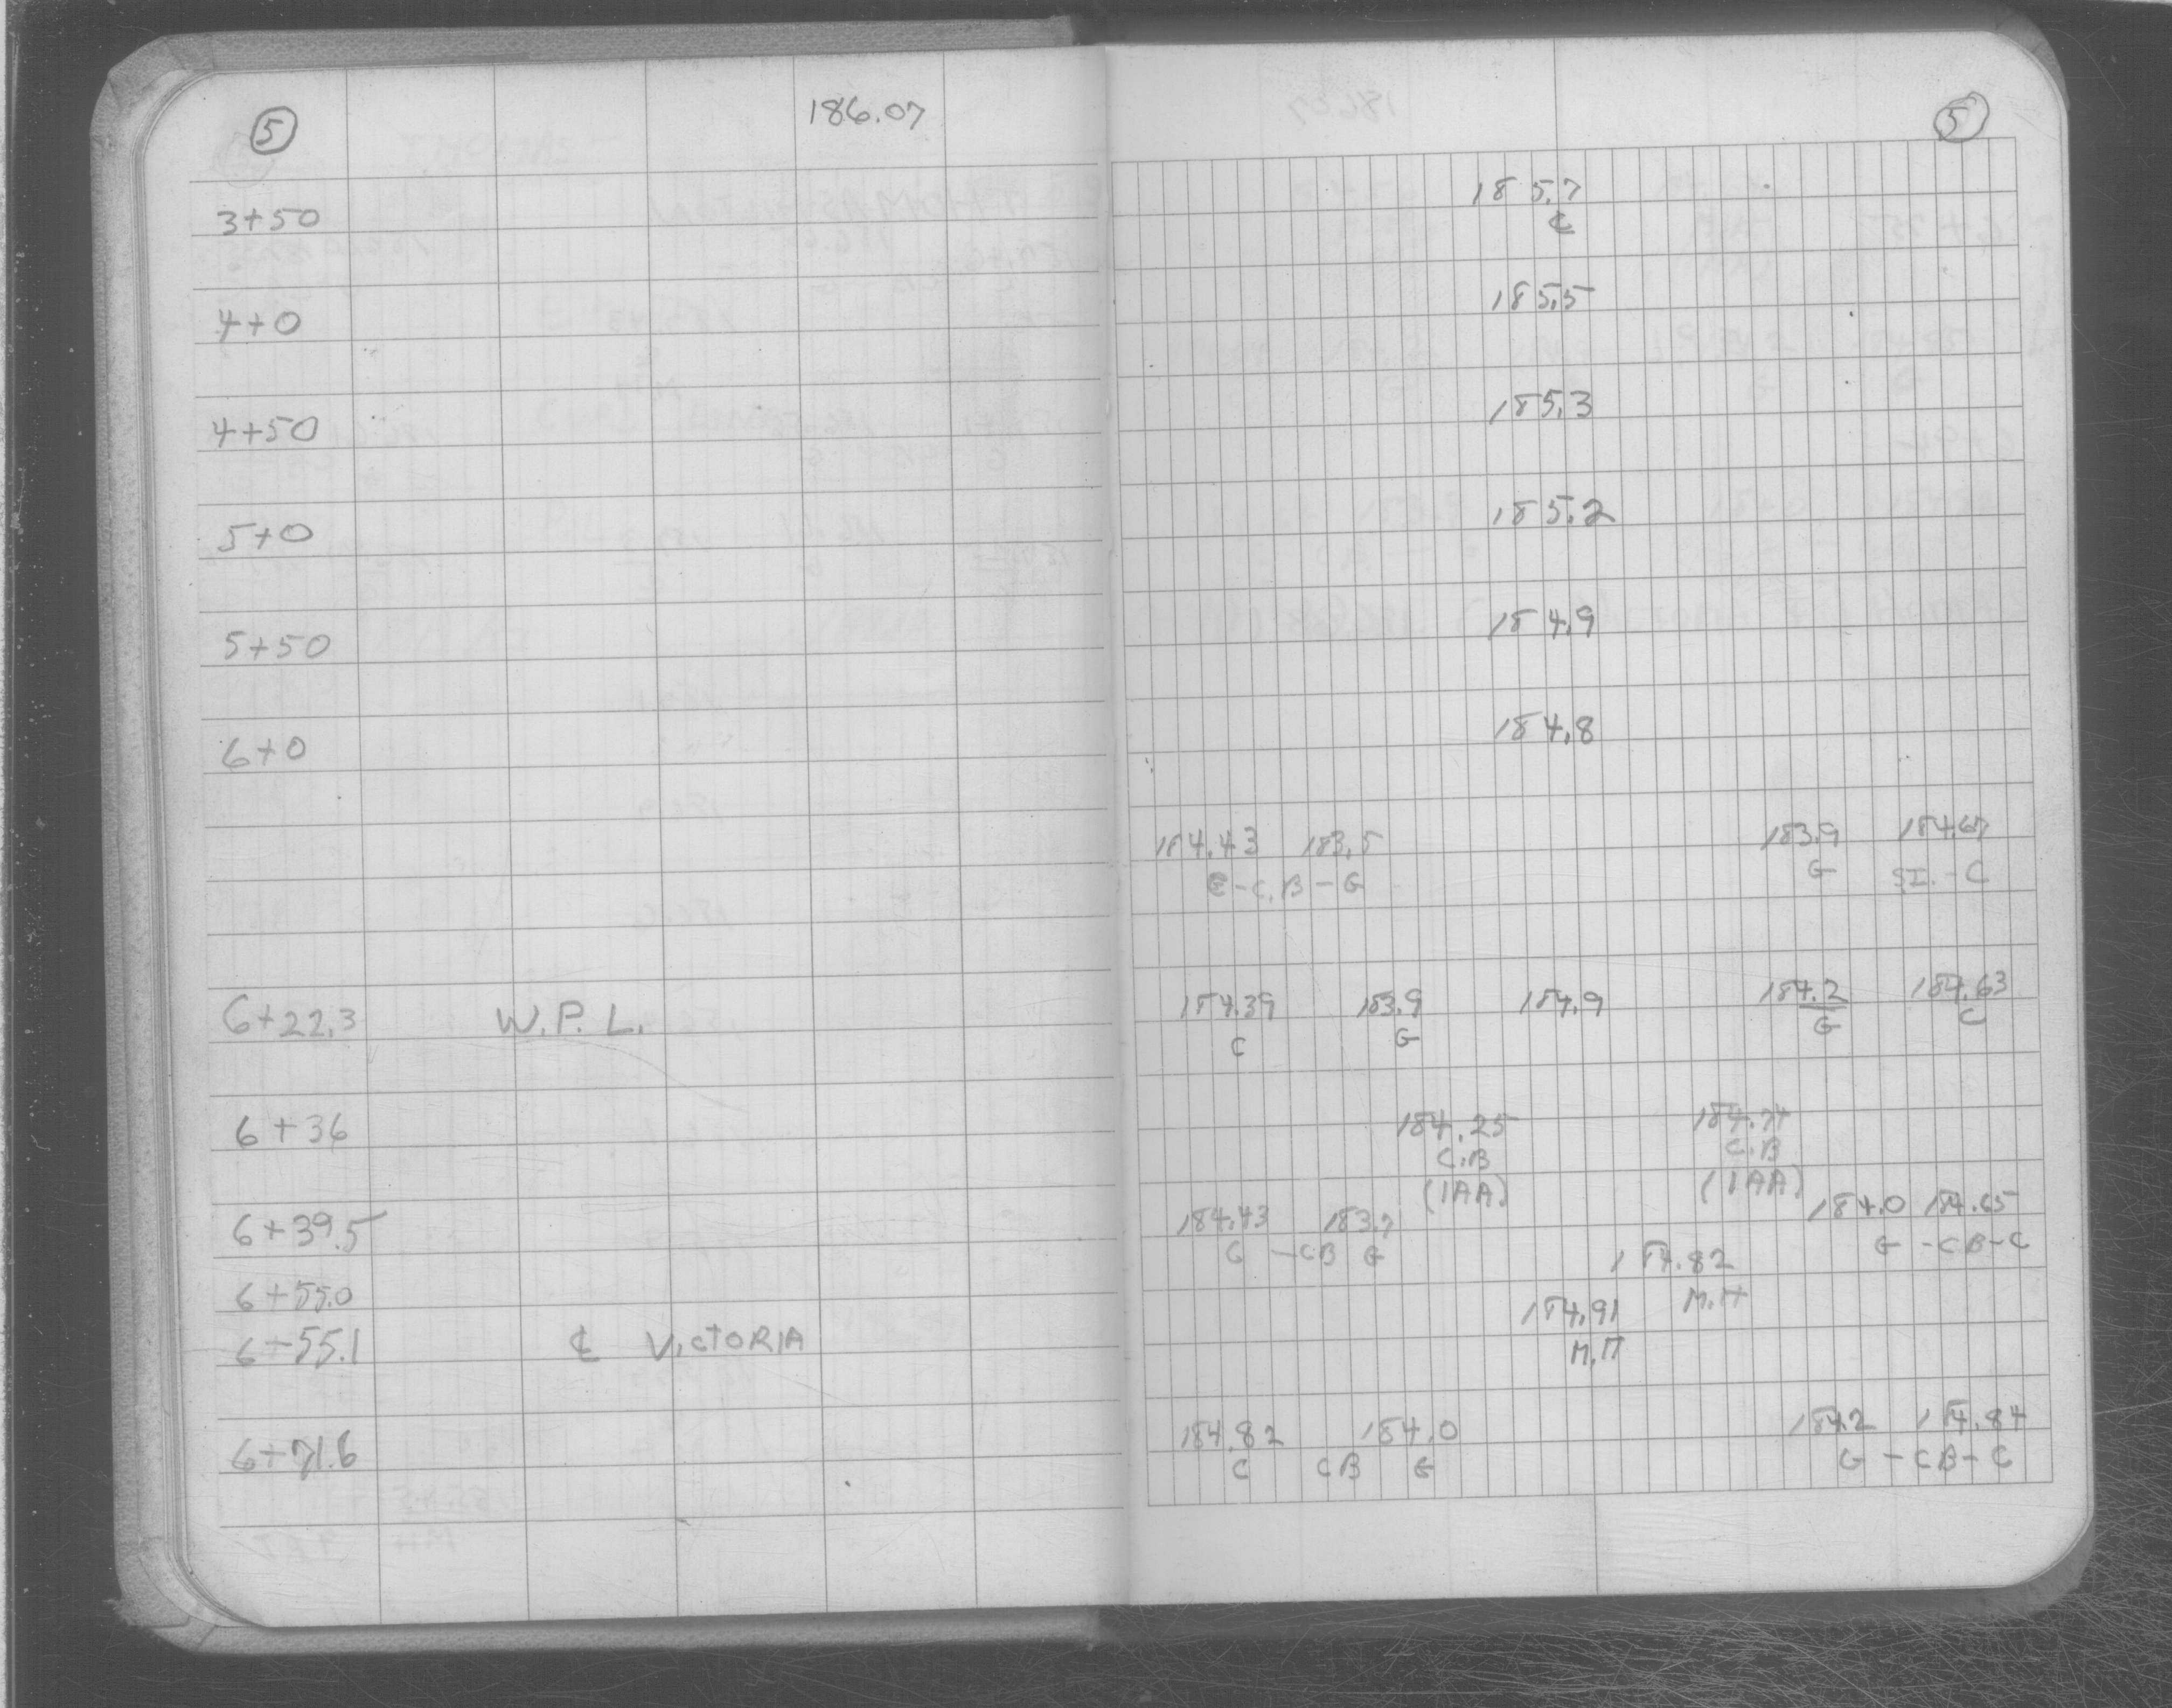 5 186.07 5
3+50 185.7
℄
4+0 185.5
4+50 185.3
5+0 185.2
5+50 184.9
6+0 184.8
184.43 183.5 183.9 184.67
C-C.B-G G S.I.-C
6+22.3 W.P.L. 184.39 183.9 184.9 184.2 184.63
C G G C
6+36 184.25 184.74
C.B C.B
(1AA) (1AA)
6+39.5 184.43 183.7 184.0 184.65
C -CB G G -CB-C
6+55.0 184.82
M.H
6+55.1 ℄ VICTORIA 184.91
M.H
6+71.6 184.82 184.0 184.2 184.84
C CB G G-CB-C